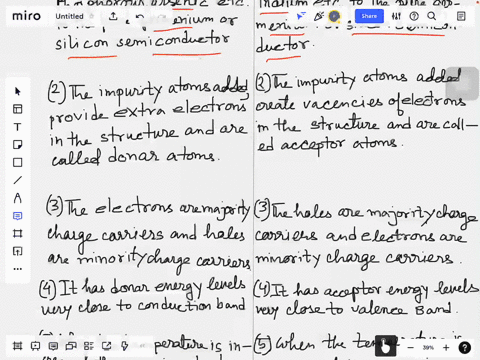 miro
Untitled
Share
silicon semiconductor
ductor.
(2) The impurity atoms added
provide extra electrons
in the structure and are
called donar atoms.
(2) The impurity atoms added
create vacancies of electrons
in the structure and are call-
ed acceptor atoms.
(3) The electrons are majority
charge carriers and holes
are minority charge carriers
(3) The holes are majority charge
carriers and electrons are
minority charge carriers.
(4) It has donar energy levels
very close to conduction band
(4) It has acceptor energy levels
very close to valence Band.
(5) When the
39%